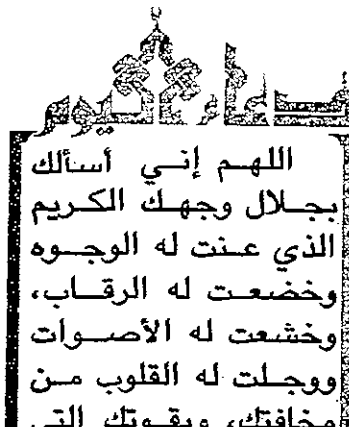 دعاء اليوم
اللهم إني أسألك
بجلال وجهك الكريم
الذي عنت له الوجوه
وخضعت له الرقاب،
وخشعت له الأصوات
ووجلت له القلوب من
مخافتك، وبقوتك التي